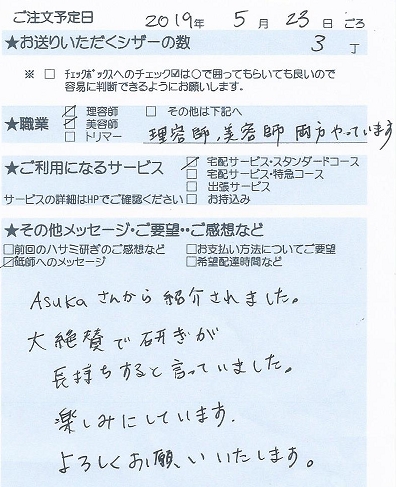 ご注文予定日 2019年 5月 23日ごろ
★お送りいただくシザーの数 3丁
※ □ ﾁｪｯｸﾎﾞｯｸｽへのチェック☑は○で囲ってもらいても良いので
容易に判断できるようにお願いします。
★職業 ☑ 理容師 □ その他は下記へ
☑ 美容師
□ トリマー 理容師、美容師 両方やっています
★ご利用になるサービス ☑ 宅配サービス・スタンダードコース
□ 宅配サービス・特急コース
□ 出張サービス
サービスの詳細はHPでご確認ください □ お持込み
★その他メッセージ・ご要望・・ご感想など
□前回のハサミ研ぎのご感想など □お支払い方法についてご要望
☑砥師へのメッセージ □希望配達時間など
Asukaさんから紹介されました。
大絶賛で研ぎが
長持ちすると言っていました。
楽しみにしています.
よろしくお願いいたします。